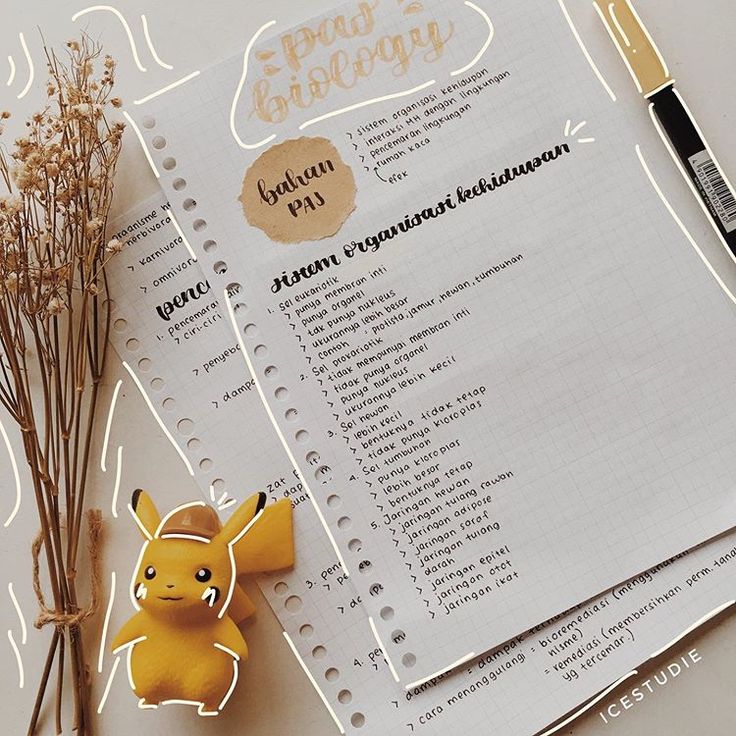 pas
biology
> sistem organisasi kehidupan
> interaksi MH dengan lingkungan
> pencemaran lingkungan
> rumah kaca
efek
bahan
PAS
sistem organisasi kehidupan
1. Sel eukariotik
> punya membran inti
> punya organel
> tak punya nukleus
> ukurannya lebih besar
> contoh : protista, jamur, hewan, tumbuhan
2. Sel prokariotik
> tidak mempunyai membran inti
> tidak punya organel
> punya nukleus
> ukurannya lebih kecil
3. Sel hewan
> lebih kecil
> bentuknya tidak tetap
> tidak punya kloroplas
4. Sel tumbuhan
> punya kloroplas
> lebih besar
> bentuknya tetap
5. Jaringan hewan
> jaringan tulang rawan
> jaringan adipose
> jaringan saraf
> jaringan tulang
> darah
> jaringan epitel
> jaringan otot
> jaringan ikat
organisme
herbivora
> karnivora
> omnivora
penc
1. pencemaran air
> ciri-ciri
> penyeb
> dampa
zat
> dap
3. pen
> pe
> da
4. pe
> pe
> dampak
= dampak
> cara menanggulangi = bioremediasi (menggunakan
nisme)
= remediasi (membersihkan perm. tanah
yg tercemar.)
ICESTUDIE